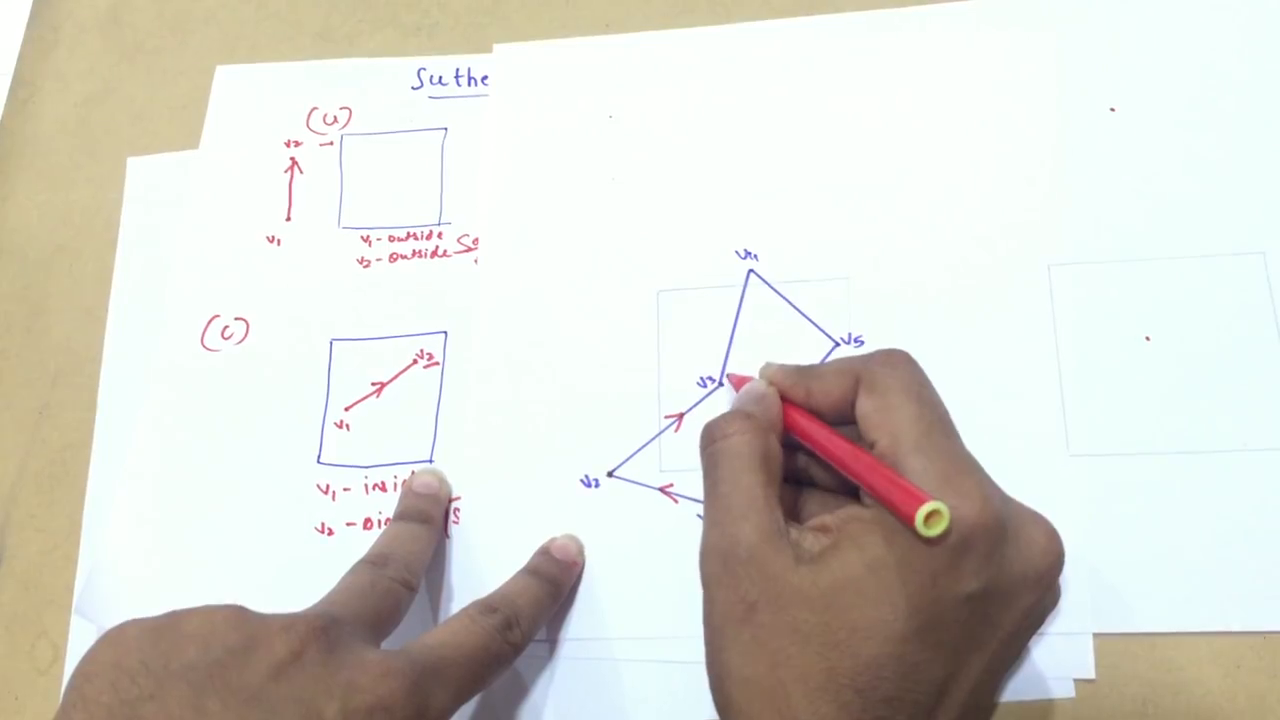 Suthe
(a)
v2
v1
v1 - outside
v2 - outside
(c)
v2
v1
v1 -
v2 -
v4
v5
v3
v2